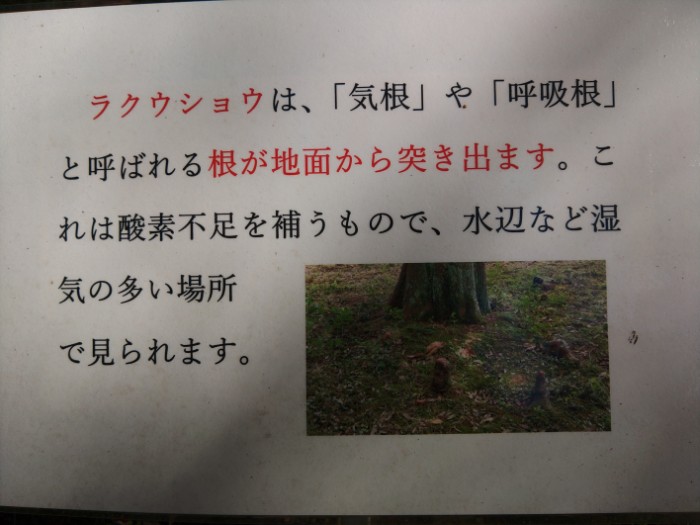 ラクウショウは、「気根」や「呼吸根」
と呼ばれる根が地面から突き出ます。こ
れは酸素不足を補うもので、水辺など湿
気の多い場所
で見られます。